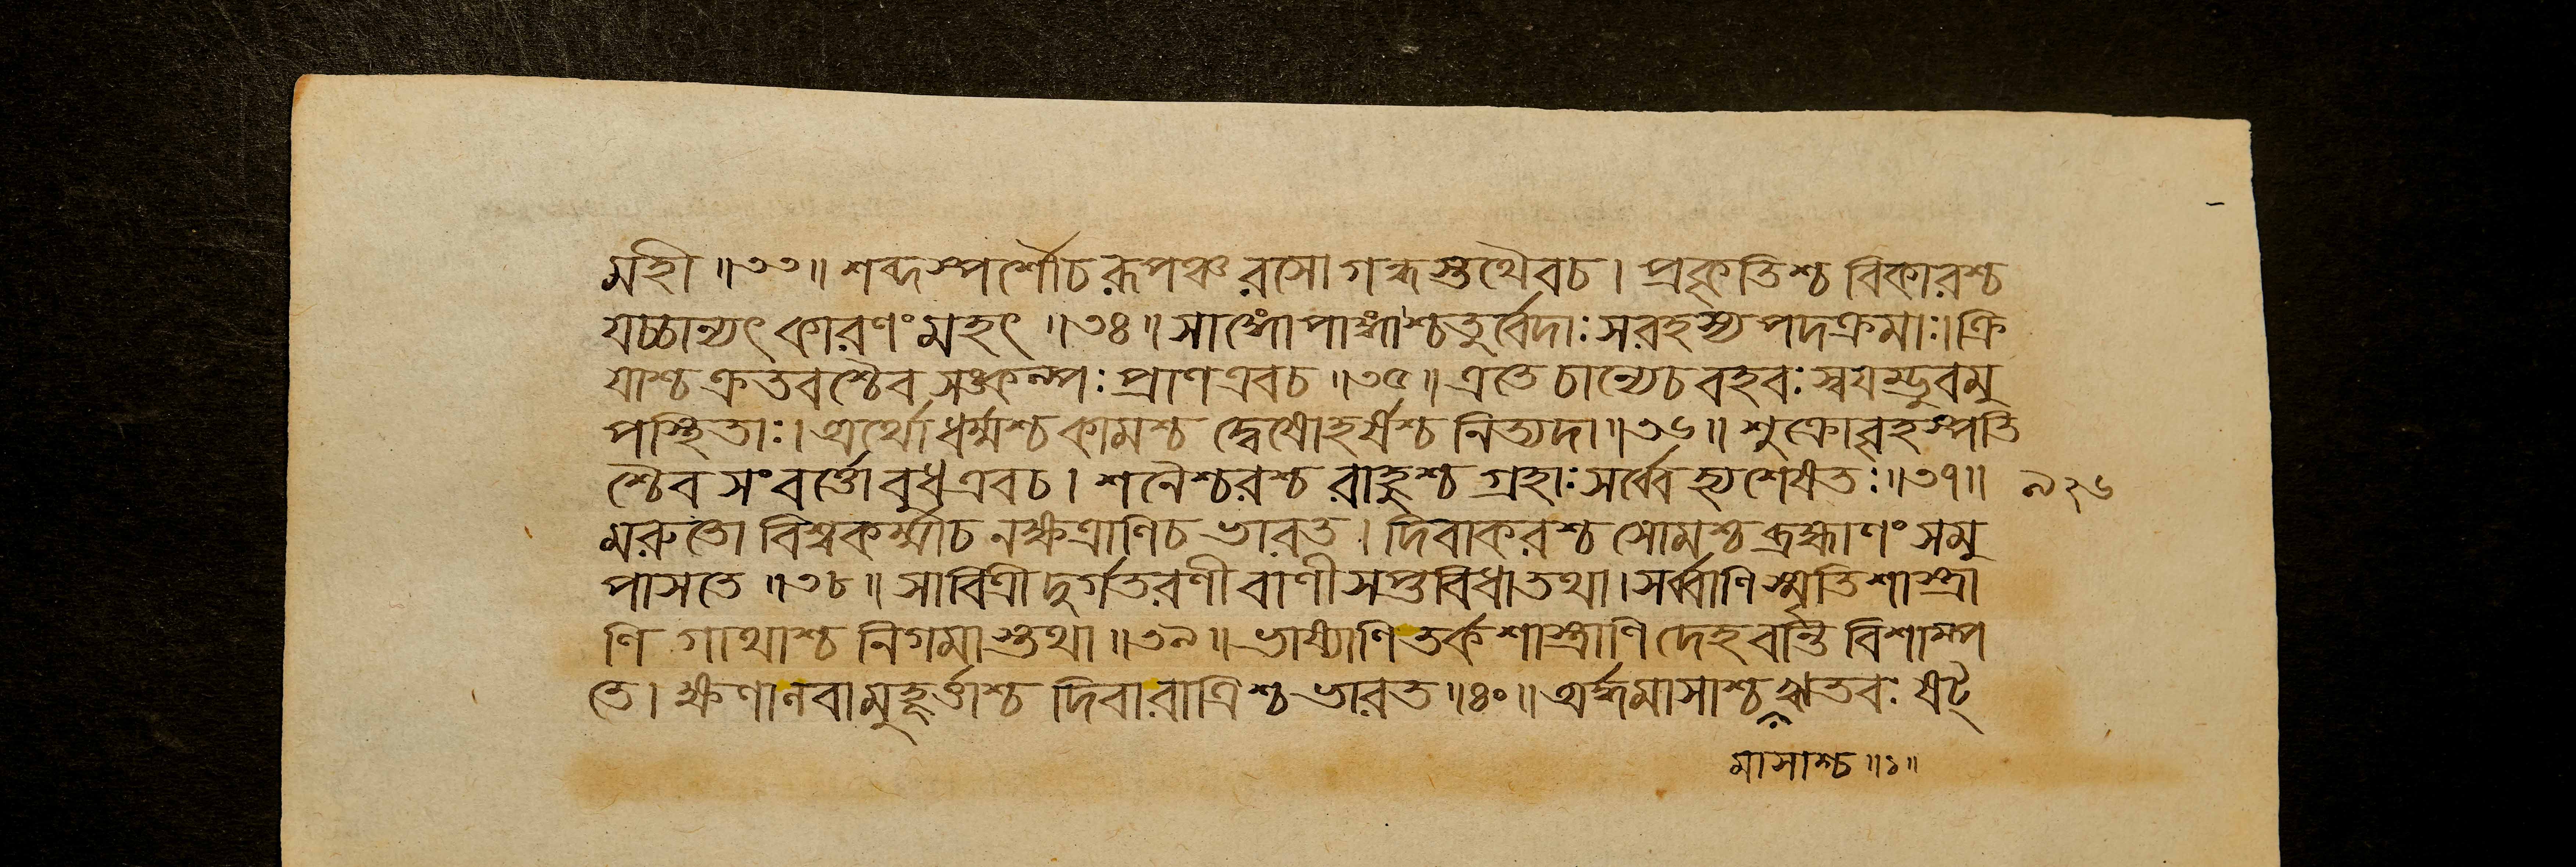 মহী ॥৩৩॥ শব্দস্পর্শৌচরূপঞ্চ রসো গন্ধস্তথৈবচ । প্রকৃতিশ্চ বিকারশ্চ
যচ্চান্যৎ কারণং মহৎ ॥৩৪॥ সাঙ্গোপাঙ্গাশ্চতুর্বেদাঃ সরহস্যপদক্রমাঃ । ক্রি
যাশ্চ ক্রতবশ্চৈব সঙ্কল্পঃ প্রাণএবচ ॥৩৫॥ এতে চান্যেচ বহবঃ স্বযম্ভুবমু
পস্থিতাঃ । অর্থো ধর্ম্মশ্চ কামশ্চ দ্বেষোহর্ষশ্চ নিত্যদা ॥৩৬॥ শুক্রোবৃহস্পতি
শ্চৈব সংবর্ত্তোবুধএবচ । শনৈশ্চরশ্চ রাহুশ্চ গ্রহাঃ সর্ব্বে হ্যশেষতঃ ॥৩৭॥ ৯২৬
মরুতো বিশ্বকর্ম্মাচ নক্ষত্রাণিচ ভারত । দিবাকরশ্চ সোমশ্চ ব্রহ্মাণং সমু
পাসতে ॥৩৮॥ সাবিত্রী দুর্গতরণী বাণী সপ্তবিধা তথা । সর্ব্বাণি স্মৃতিশাস্ত্রা
ণি গাথাশ্চ নিগমাস্তথা ॥৩৯॥ ভাষ্যাণি তর্কশাস্ত্রাণি দেহবন্তি বিশাম্প
তে । ক্ষণানবামুহূর্ত্তাশ্চ দিবারাত্রিশ্চ ভারত ॥৪০॥ অর্দ্ধমাসাশ্চ ঋতবঃ ষট্
মাসাশ্চ ॥১॥